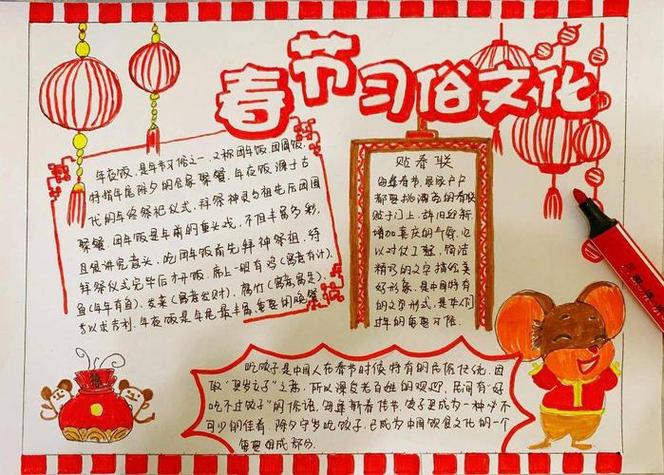 春节习俗文化
年夜饭,是春节习俗之一,又称团年饭、团圆饭,
特指年尾除夕的合家聚餐。年夜饭源于古
代的年终祭祀仪式,拜祭神灵与祖先后团圆
聚餐。团年饭是年前的重头戏,不但丰富多彩,
且很讲究意义。吃团年饭前先拜神祭祖,待
拜祭仪式完毕后才开饭。席上一般有鸡(寓意有计)、
鱼(年年有鱼)、发菜(寓意发财)、腐竹(寓意富足)、
等以求吉利。年夜饭是年尾最丰富、重要的晚餐
贴春联
每年春节,家家户户
都要挑漂亮的春联
贴于门上,辞旧迎新,
增加喜庆的气氛,它
以对仗工整、简洁
精巧的文字描绘美
好形象,是中国特有
的文学形式,是华人们
过年的重要习俗。
吃饺子是中国人在春节时候特有的民俗传统,因
取"更岁交子"之意,所以深受老百姓的欢迎,民间有"好
吃不过饺子"的俗语,每年新春佳节,饺子更成为一种必不
可少的佳肴。除夕守岁吃饺子,已成为中国饮食文化的一个
重要组成部分
福